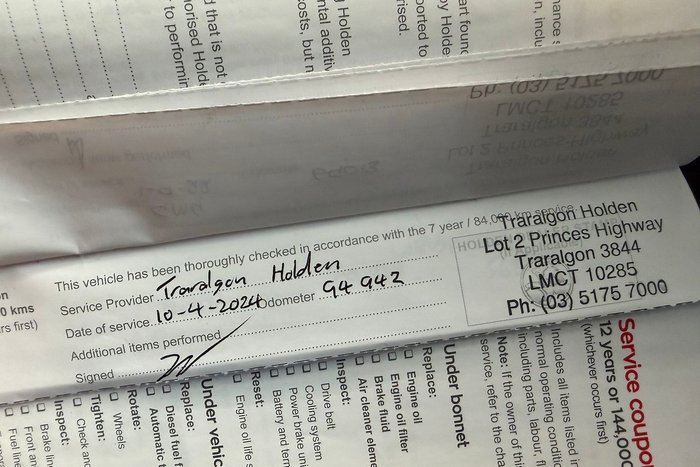 d that is not
orised Holde
to performin
Holden
ntal additiv
costs, but n
art foun
by Holde
ported to
rised.
nance s
n, inclu
Ph: (03) 5175 7000
LMCT 10285
Traralgon 3844
Lot 2 Princes Highway
Traralgon Holden
This vehicle has been thoroughly checked in accordance with the 7 year / 84,000 km service.
Service Provider Traralgon Holden
Date of service 10-4-2024 Odometer 94 942
Additional items performed
Signed
Traralgon Holden
Lot 2 Princes Highway
Traralgon 3844
LMCT 10285
Ph: (03) 5175 7000
on
0 kms
rs first)
Service coupo
12 years or 144,000
(whichever occurs first)
Includes all items listed in
normal operating conditio
including parts, labour,
Note: If the owner of this
service, refer to the cha
Under bonnet
Replace:
Engine oil
Engine oil filter
Brake fluid
Air cleaner eleme
Inspect:
Drive belt
Cooling system
Power brake uni
Battery and term
Reset:
Engine oil life s
Under vehic
Replace:
Diesel fuel f
Automatic t
Rotate:
Wheels
Tighten:
Check and
Inspect:
Brake line
Front an
Fuel line